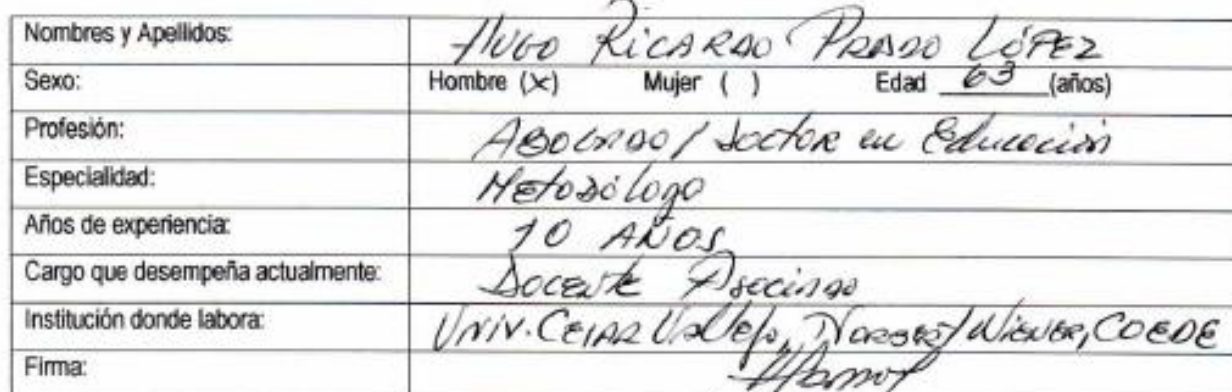 Nombres y Apellidos: Hugo Ricardo Prado López
Sexo: Hombre (x) Mujer ( ) Edad 63 (años)
Profesión: Abogado / Doctor en Educación
Especialidad: Metodólogo
Años de experiencia: 10 AÑOS
Cargo que desempeña actualmente: Docente Asociado
Institución donde labora: Univ. Cesar Vallejo, / Wiener, COEDE
Firma: